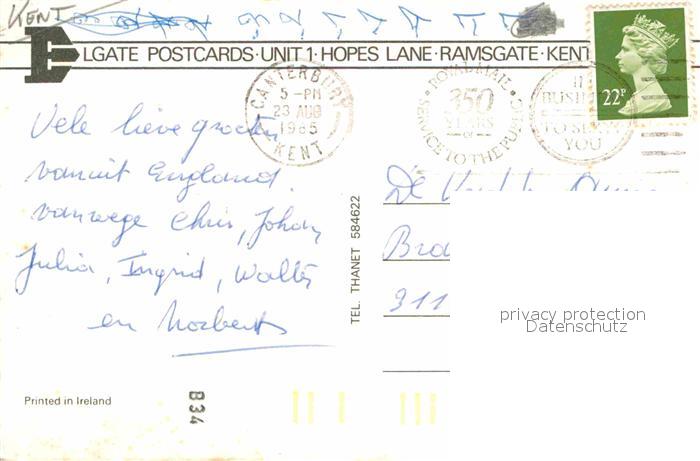 KENT
ELGATE POSTCARDS · UNIT 1 · HOPES LANE · RAMSGATE · KENT
CANTERBURY
5 - PM
23 AUG
1985
KENT
ROYAL MAIL
350
YEARS
OF
SERVICE TO THE PUBLIC
BUSI
TO S
YOU
22P
Vele lieve groeten
vanuit England.
vanwege Chris, Johan,
Julia, Ingrid, Walter
en Norbert
TEL. THANET 584622
De
Bra
311
privacy protection
Datenschutz
Printed in Ireland
B34